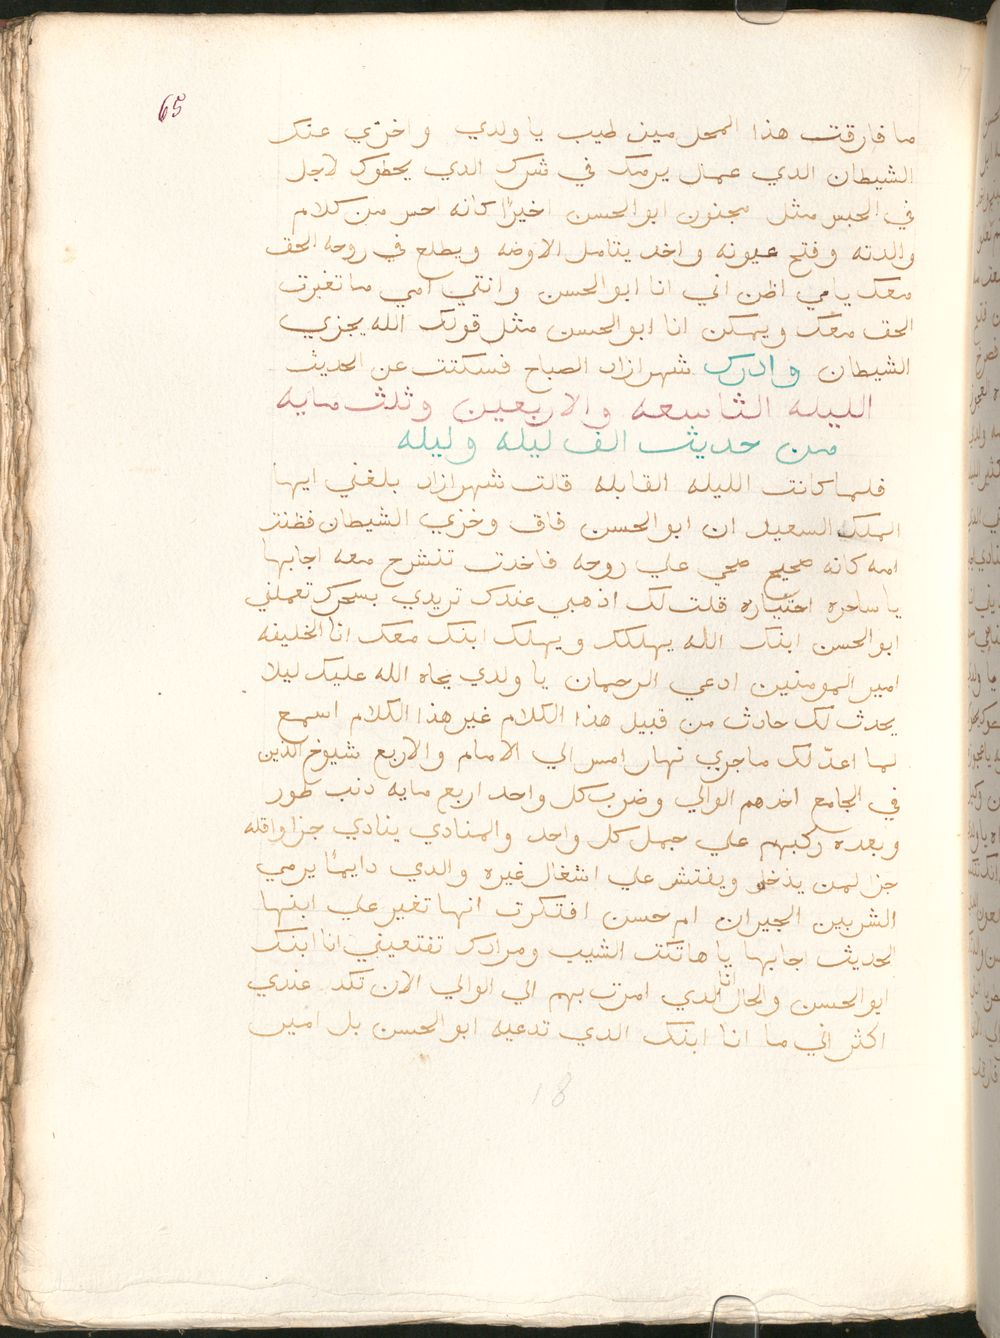 65
ما فارقت هذا المحل مين طيب يا ولدي واخزي عنك
الشيطان الدي عمال يرمك في شرك الدي يحطوك لاجل
في الحبس مثل مجنون ابو الحسن اخيرًا كانه احس من كلام
والدته وفتح عيونه واخد يتامل الاوضه ويطلع في روحه الحق
معك يامي اظن اني انا ابو الحسن وانتي امي ما تغبرت
الحق معك ويمكن انا ابو الحسن مثل قولك الله يجزي
الشيطان وادرك شهرازاد الصباح فسكتت عن الحديث
الليله التاسعه والاربعين وثلث مايه
من حديث الف ليله وليله
فلما كانت الليله القابله قالت شهرازاد بلغني ايها
الملك السعيد ان ابو الحسن فاق وخزي الشيطان فظنت
امه كانه صحيح صحي علي روحه فاخدت تنشرح معه اجابها
يا ساحره اختياره قلت لك اذهبي عندك تريدي بسحرك تعملني
ابو الحسن ابنك الله يهلكك ويهلك ابنك معك انا الخليفه
امير المومنين ادعي الرحمان يا ولدي يجاه الله عليك ليلا
يحدث لك حادث من قبيل هذا الكلام غير هذا الكلام اسمع
لما اعدّ لك ماجري نهار امس الي الامام والاربع شيوخ الذين
في الجامع اخدهم الوالي وضرب كل واحد اربع مايه دنب طور
وبعده ركبهم علي جمل كل واحد والمنادي ينادي جزا واقله
جزا لمن يدخل ويفتش علي اشغال غيره والدي دايمًا يرمي
الشر بين الجيران ام حسن افتكرت انها تغير علي ابنها
الحديث اجابها يا هاتكت الشيب ومرادك تقنعيني انا ابنك
ابو الحسن والحال انا الدي امرت بهم الي الوالي الان تكد عندي
اكثر اني ما انا ابنك الدي تدعيه ابو الحسن بل امين
18